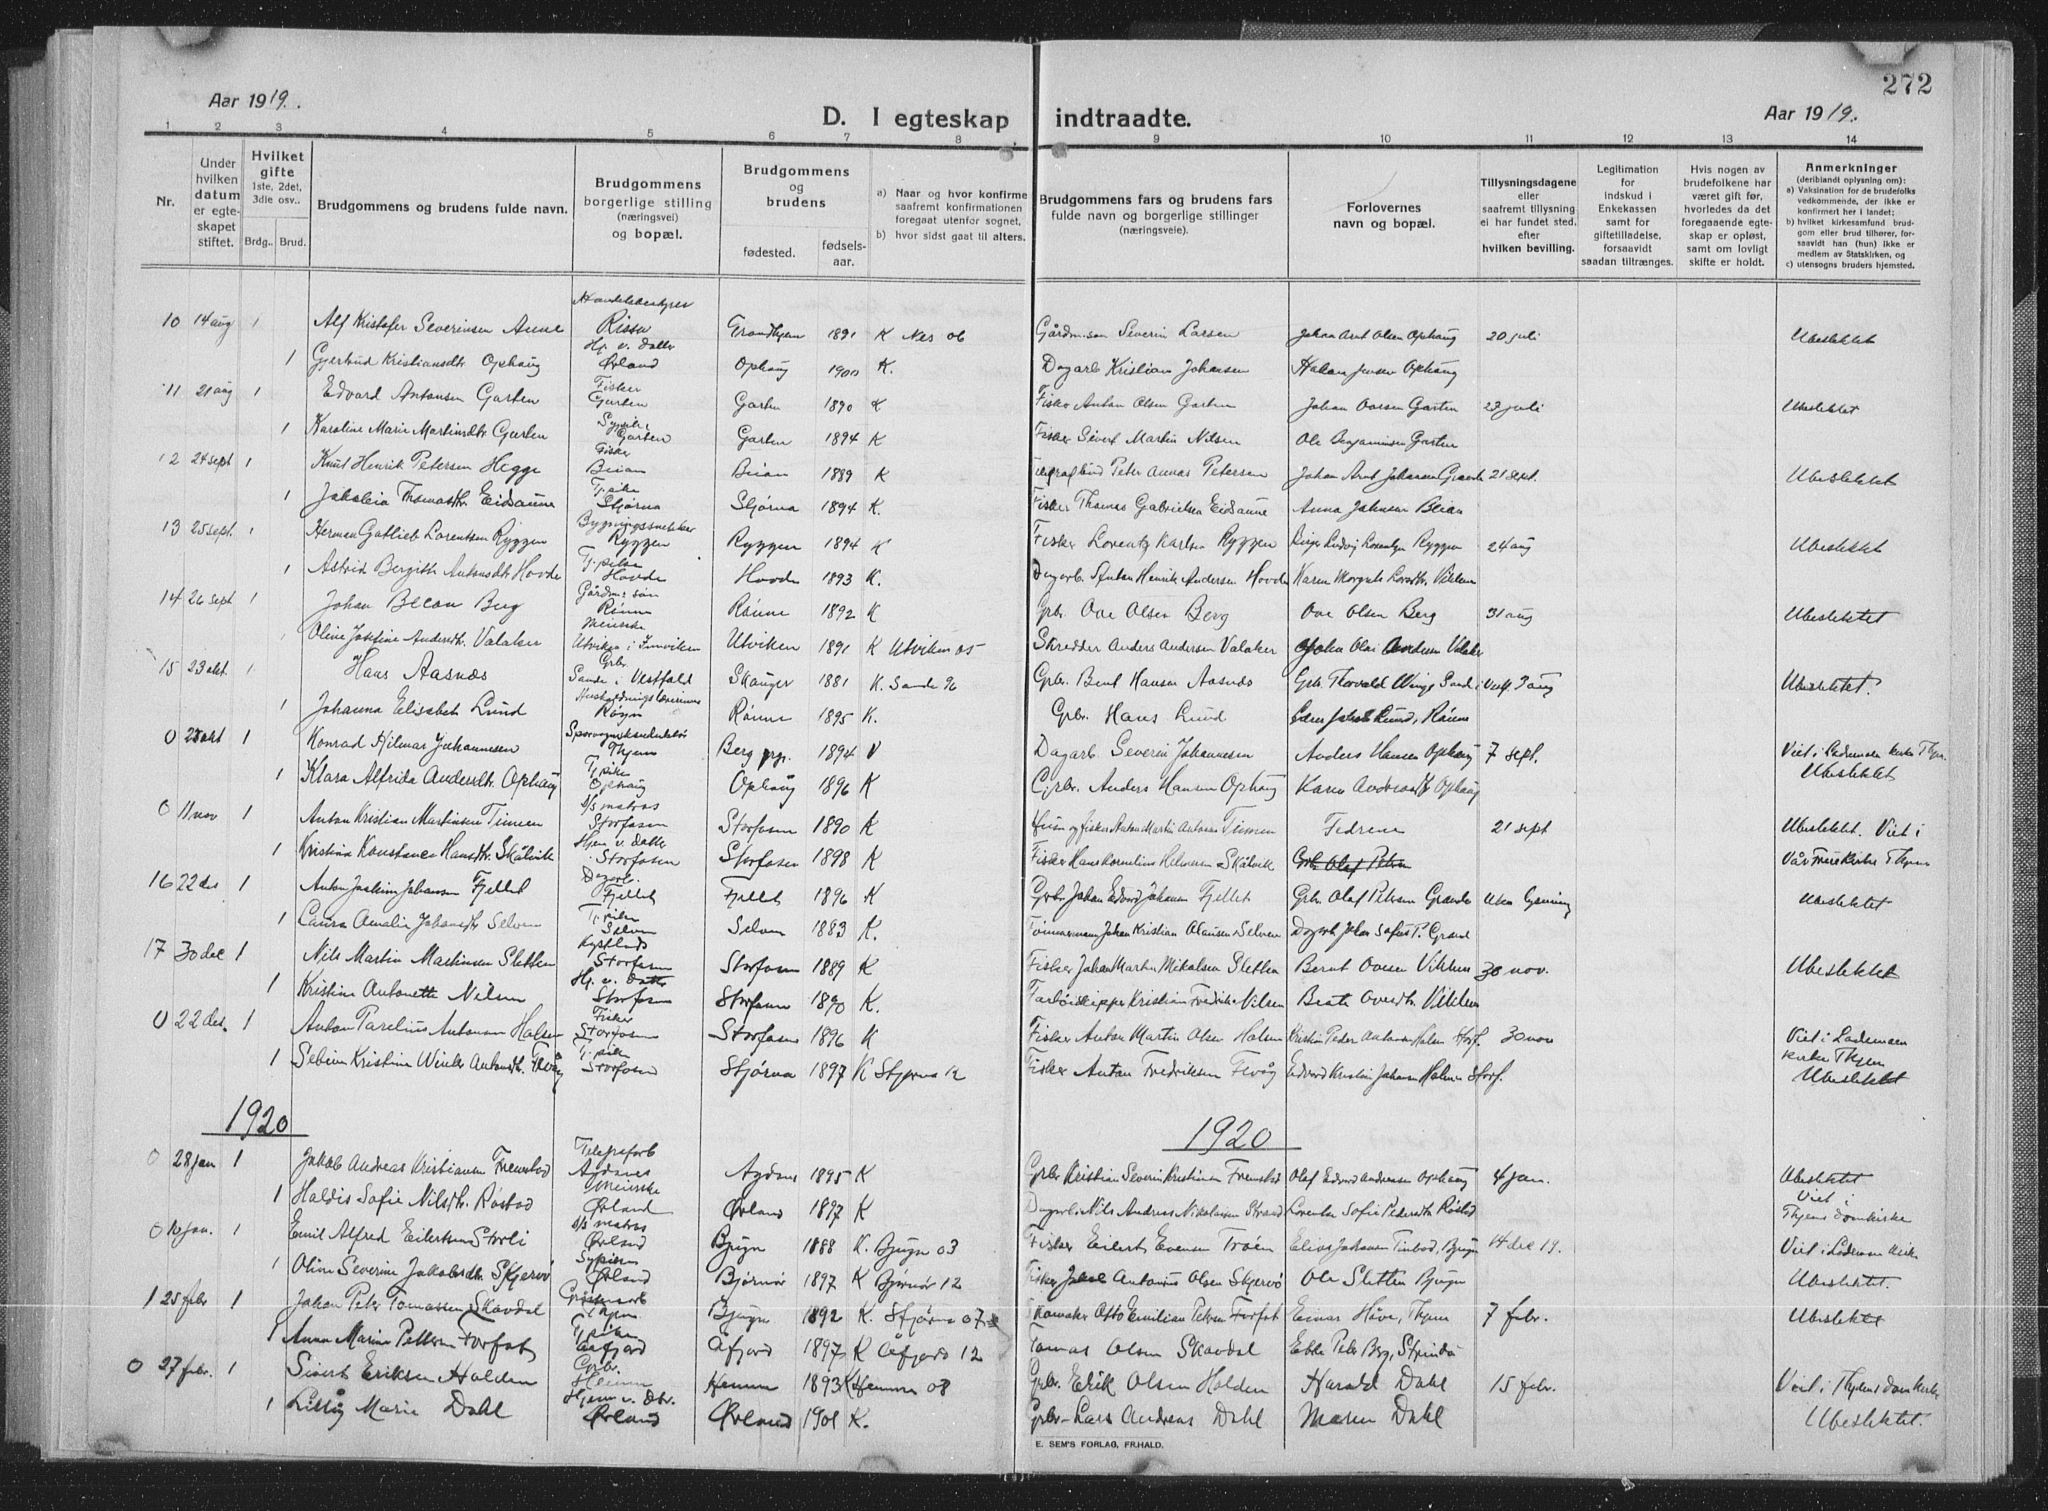 272
Aar 1919.
D. I egteskap indtraadte.
Aar 1919.
1 2 3 4 5 6 7 8 9 10 11 12 13 14
Nr.
Under hvilken datum er egteskapet stiftet.
Hvilket gifte 1ste, 2det, 3die osv.. Brdg.. Brud.
Brudgommens og brudens fulde navn.
Brudgommens borgerlige stilling (næringsvei) og bopæl.
Brudgommens og brudens fødested. fødselsaar.
a) Naar og hvor konfirmert saafremt konfirmationen foregaat utenfor sognet,
b) hvor sidst gaat til alters.
Brudgommens fars og brudens fars fulde navn og borgerlige stillinger (næringsveie).
Forlovernes navn og bopæl.
Tillysningsdagene eller saafremt tillysning ei har fundet sted, efter hvilken bevilling.
Legitimation for indskud i Enkekassen samt for giftetilladelse, forsaavidt saadan tiltrænges.
Hvis nogen av brudefolkene har været gift før, hvorledes da det foregaaende egteskap er opløst, samt om lovligt skifte er holdt.
Anmerkninger (deriblandt oplysning om):
a) Vaksination for de brudefolks vedkommende, der ikke er konfirmert her i landet;
b) hvilket kirkesamfund brudgom eller brud tilhører, forsaavidt han (hun) ikke er medlem av Statskirken, og
c) utensogns bruders hjemsted.
10 14 aug 1 Alf Kristofer Severinsen Anne Rissa 1891 K Nes 06 Gårdm.søn Severin Larsen Johan Arnt Olsen Ophaug 20 juli Ubeslektet
1 Gjertrud Kristiansdtr Ophaug Hj. v. datter Ørland Ophaug 1900 K. Dagarb Kristian Johansen Hakon Jensen Ophaug
11 21 aug 1 Edvard Antonsen Garten Fisker Garten Garten 1890 K Fisker Anton Olsen Garten Johan Garten 23 juli Ubeslektet
1 Karoline Marie Martinsdtr Garten Garten Garten 1894 K Fisker Sivert Martin Nilsen Ole Benjaminsen Garten
12 24 sept 1 Knut Henrik Petersen Hegge Fisker Beian Beian 1889 K Peter Petersen Johan Arnt Johansen 21 sept. Ubeslektet
1 Thomasdtr Eidsaune Tj.pike Stjørna Stjørna 1894 K. Fisker Thomas Gabrielsen Eidsaune Anna Johnsen Beian
13 25 sept. 1 Herman Gotlieb Lorentsen Ryggen Bygningssnekker Ryggen Ryggen 1894 K Fisker Lorentz Karlsen Ryggen Ludvig Ryggen 24 aug Ubeslektet
1 Astrid Bergitte Antonsdtr Hovde Tj.pike Hovde Hovde 1893 K. Dagarb. Anton Henrik Andersen Hovde Karen Viklem
14 26 sept 1 Johan Berg Gårdm. søn Rønne Rønne 1892 K Grbr. Ove Olsen Berg Ove Olsen Berg 31 aug Ubeslektet
Oline Josefine Andersdtr. Valaker Meierske Utviken i Innviken Utviken 1891 K Utviken 05 Skredder Anders Andersen Valaker John Olai Andersen Valaker
15 23 okt. 1 Hans Aasnæs Grbr. Sande i Vestfold Skauger 1881 K. Sande 96 Grbr. Bent Hansen Aasnæs Grbr. Thorvald Winge Sande i Vestf. 3 aug Ubeslektet.
1 Johanna Elisabet Lund Rønne 1895 K. Grbr. Hans Lund Jakob Lund, Rønne
0 1 Konrad Hilmar Johannesen Sporvognskonduktør Thjem Berg prg. 1894 V Dagarb Severin Johannesen Anders Hansen Ophaug 7 sept. Viet i Lademoen kirke Thjem. Ubeslektet
1 Klara Alfrida Andersdtr. Ophaug Tj.pike Ophaug Ophaug 1896 K Grbr. Anders Hansen Ophaug Karen Ophaug
0 11 nov 1 Anton Kristian Martinsen Tinnen D/S matros Storfosen Storfosen 1890 K Anton Martin Tinnen Fedrene 21 sept Ubeslektet. Viet i
1 Kristine Konstance Hansdtr. Skålvik Hjem v. datter Storfosen Storfosen 1898 K Fisker Hans Kornelius Skålvik Grbr. Olaf Petersen Vår Frue kirke Thjem
16 22 des 1 Anton Joakim Johansen Fjellet Dagarb. Fjellet Fjellet 1896 K Grbr. Johan Edvard Johansen Fjellet Grbr. Olaf Petersen Grande Ubeslektet
1 Laura Amalie Johansdtr Selven Tj.pike Selven Selven 1883 K. Tømmermann Johan Kristian Selven Dagarb
17 30 dec 1 Nils Martin Martinsen Sletten Storfosen Storfosen 1889 K Fisker Johan Martin Mikalsen Sletten Bernt Ovesen Viklem 30 nov. Ubeslektet
1 Kristine Antonette Nilsen Hj. v. Datter Storfosen Storfosen 1890 K. Kristian Fredrik Nilsen Beate Viklem
0 22 des. 1 Anton Parelius Antonsen Halsen Fisker Storfosen Storfosen 1896 K Fisker Anton Martin Olsen Halsen Kristian Peder Antonsen Halsen Storf. 30 nov Viet i Lademoen kirke Thjem
1 Kristine Antonsdtr. Tj.pike Storfosen Stjørna 1897 K Stjørna 12 Fisker Anton Fredriksen Edvard Kristian Johansen Halsen Storf. Ubeslektet
1920 1920
0 28 jan 1 Jakob Andreas Kristiansen Fremstad Telegrafarb Agdenes Agdenes 1895 K Grbr Kristian Severin Kristiansen Fremstad Olaf Edvard Andersen Ophaug 4 jan. Ubeslektet
1 Haldis Sofie Nilsdtr. Røstad Meierske Ørland Ørland 1897 K Dagarb. Nils Andreas Nikolaisen Strand Sofie Pedersdtr Røstad Viet i Thjems domkirke
0 10 jan. 1 Emil Alfred Eilertsen Storli D/S matros Ørland Bjugn 1888 K. Bjugn 03 Fisker Eilert Evensen Troen Johansen Bjugn 14 dec 19. Viet i Lademoen kirke
1 Oline Severine Jakobsdtr. Skjervø Sypike Ørland Bjørnør 1897 K Bjørnør 12 Fisker Antonius Olsen Skjervø Ole Sletten Bjugn Ubeslektet.
1 25 febr 1 Johan Peter Tomassen Skavdal Thjem Bjugn 1892 K. Stjørna 07 Skomaker Otto Emilian Petersen Forfot Einar Hove, Thjem 7 febr. Ubeslektet
1 Anna Marie Pettersen Forfot Tj.pike Aafjord Åfjord 1897 K Åfjord 12 Tomas Olsen Skavdal Ebbe Peter Berg, Strinda
0 27 febr. 1 Sivert Eriksen Holden Grbr. Heimen Hemne 1893 K Hemne 08 Grbr. Erik Olsen Holden Harald Dahl 15 febr. Viet i Thjems domkirke
1 Marie Dahl Hjem v. Dtr. Ørland Ørland 1901 K. Grbr Lars Andreas Dahl Maren Dahl Ubeslektet.
E. SEM'S FORLAG, FR.HALD.